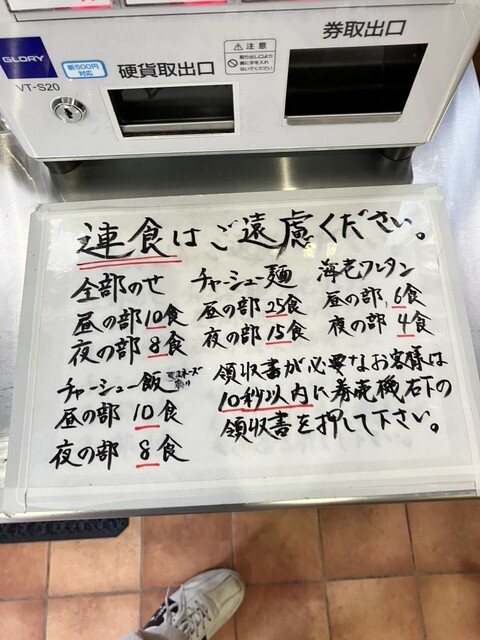 GLORY
新500円
対応
硬貨取出口
注意
券取出口
VT-S20
連食はご遠慮ください。
全部のせ
昼の部10食
夜の部8食
チャーシュー麺
昼の部25食
夜の部15食
海老ワンタン
昼の部6食
夜の部4食
チャーシュー飯
昼の部10食
夜の部8食
領収書が必要なお客様は
10秒以内に券売機右下の
領収書を押して下さい。